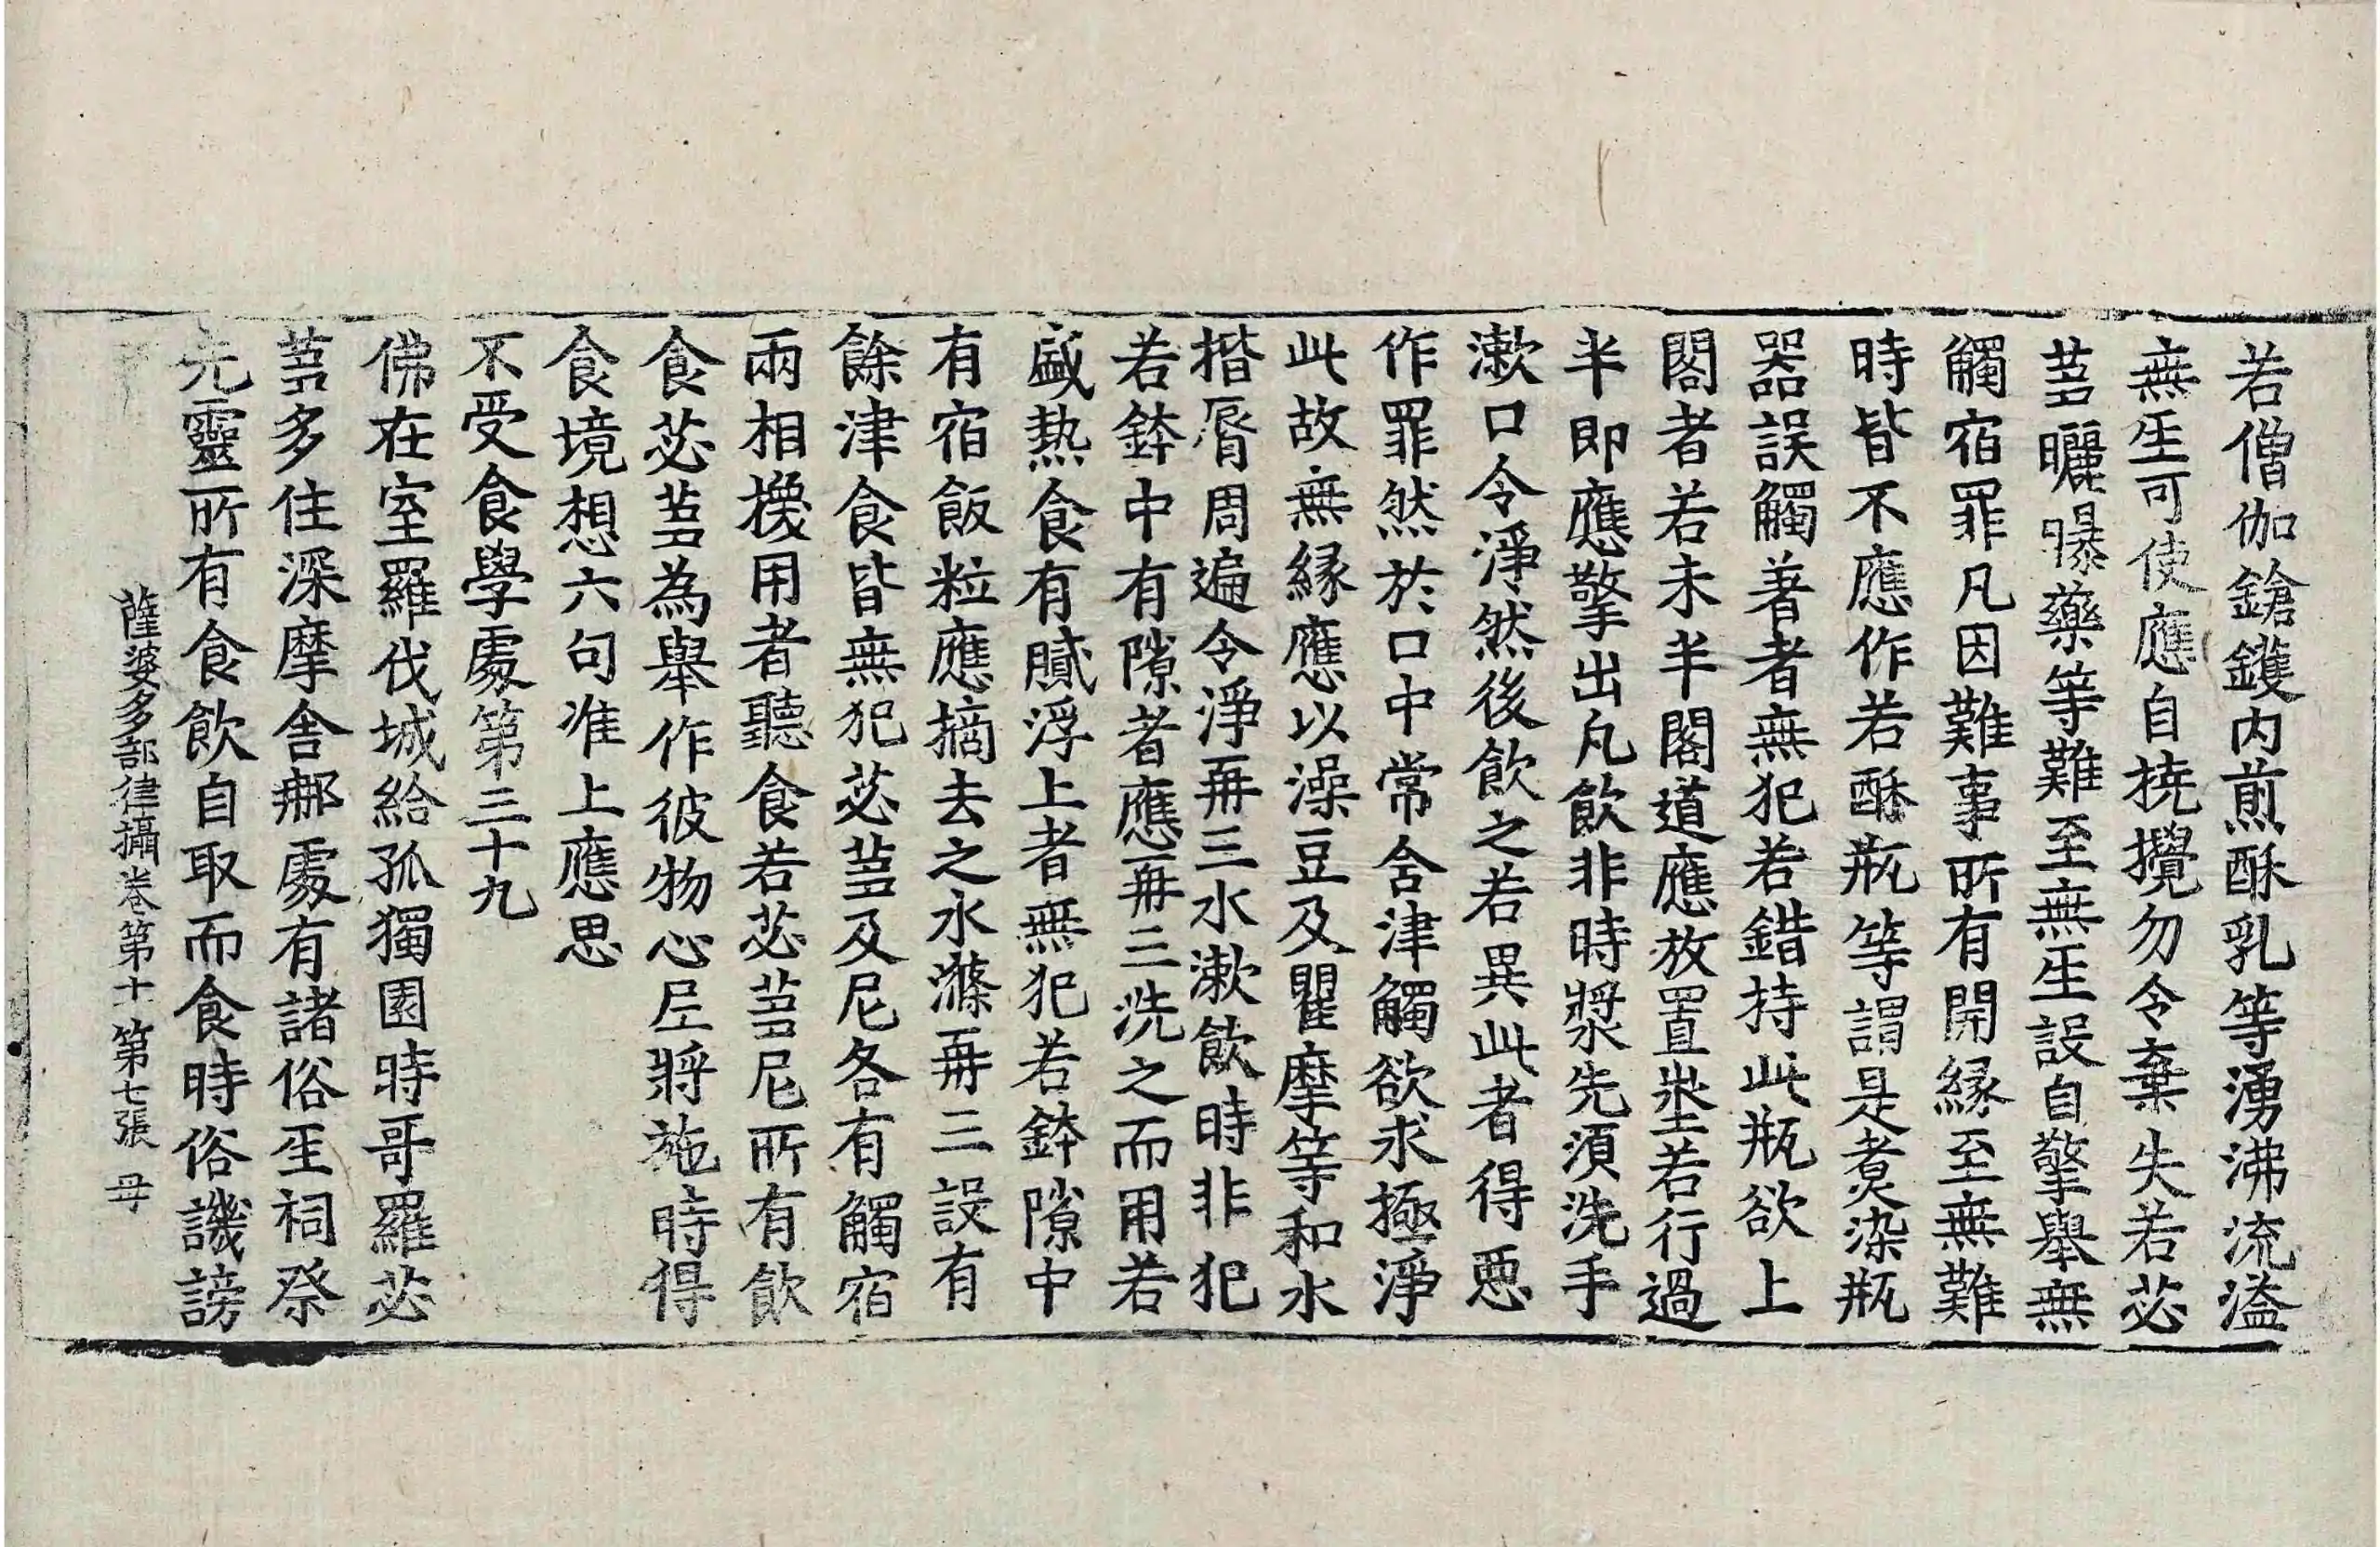 若僧伽鎗鑊内煎酥乳等湧沸流溢
無𤯔可使應自撓攪勿令棄失若苾
蒭曬曝藥等難至無𤯔設自擎舉無
觸宿罪凡因難事所有開緣至無難
時皆不應作若酥瓶等謂是煮染瓶
器誤觸著者無犯若錯持此瓶欲上
閣者若未半閣道應放置坐若行過
半即應擎出凡飲非時漿先須洗手
漱口令淨然後飲之若異此者得惡
作罪然於口中常含津觸欲求極淨
此故無緣應以澡豆及瞿摩等和水
揩脣周遍令淨再三水漱飲時非犯
若鉢中有隙者應再三洗之而用若
盛熱食有膩浮上者無犯若鉢隙中
有宿飯粒應摘去之水滌再三設有
餘津食皆無犯苾蒭及尼各有觸宿
兩相擾用者聽食若苾蒭尼所有飲
食苾蒭為舉作彼物心後將施時得
食境想六句准上應思
不受食學處第三十九
佛在室羅伐城給孤獨園時哥羅苾
蒭多住深摩舍那處有諸俗𤯔祠祭
先靈所有食飲自取而食時俗譏謗
薩婆多部律攝卷第十 第七張 母